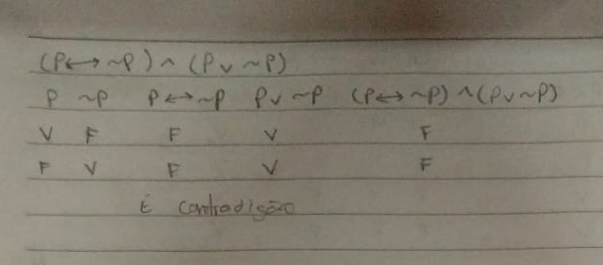 (P↔~P) ∧ (P∨~P)
P ~P P↔~P P∨~P (P↔~P) ∧(P∨~P)
V F F V F
F V F V F
É contradição